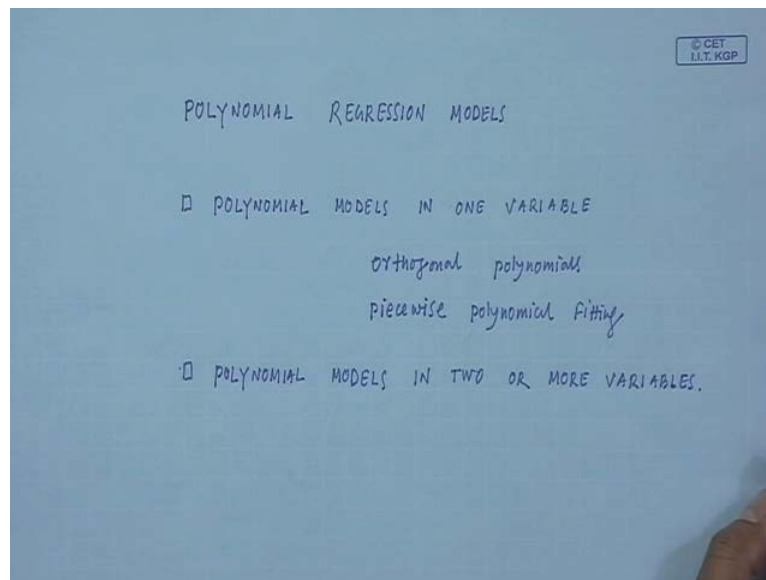 © CET
I.I.T. KGP
POLYNOMIAL REGRESSION MODELS
POLYNOMIAL MODELS IN ONE VARIABLE
orthogonal polynomials
piecewise polynomial fitting
POLYNOMIAL MODELS IN TWO OR MORE VARIABLES.